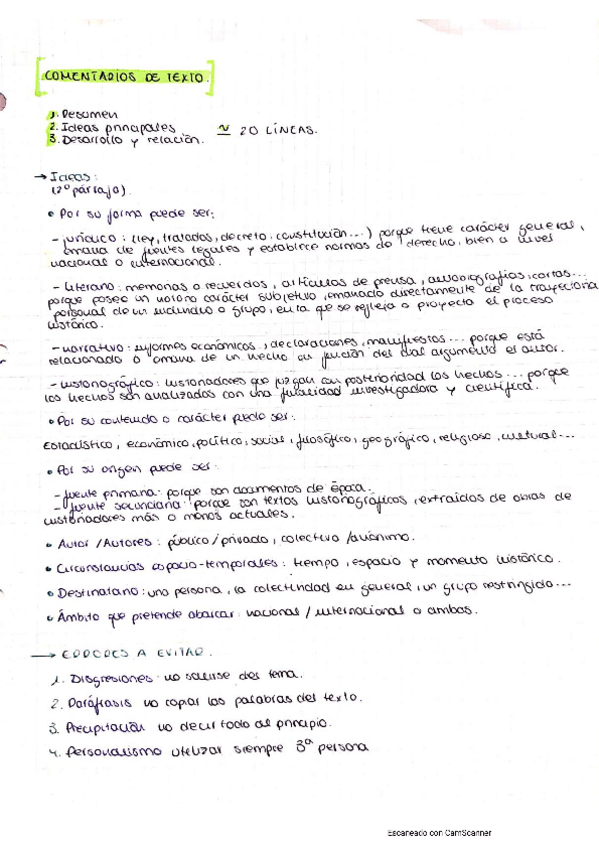 [COMENTARIOS DE TEXTO.]
1. Resumen
2. Ideas principales ≈ 20 LÍNEAS.
3. Desarrollo y relación.
→ Ideas:
(2º párrafo).
• Por su forma puede ser:
- jurídico: (ley, tratados, decreto, constitución...) porque tiene carácter general,
emana de fuentes legales y establece normas de derecho, bien a nivel
nacional o internacional.
- literario: memorias o recuerdos, artículos de prensa, autobiografías, cartas...
porque posee un notorio carácter subjetivo, emanado directamente de la trayectoria
personal de un individuo o grupo, en la que se refleja o proyecta el proceso
histórico.
- narrativo: informes económicos, declaraciones, manifiestos... porque está
relacionado o emana de un hecho en función del cual argumenta el autor.
- historiográfico: historiadores que juzgan con posterioridad los hechos... porque
los hechos son analizados con una finalidad investigadora y científica.
• Por su contenido o carácter puede ser:
Estadístico, económico, político, social, filosófico, geográfico, religioso, cultural...
• Por su origen puede ser:
- fuente primaria: porque son documentos de época.
- fuente secundaria: porque son textos historiográficos, extraídos de obras de
historiadores más o menos actuales.
• Autor /Autores: público/privado, colectivo /anónimo.
• Circunstancias espacio-temporales: tiempo, espacio y momento histórico.
• Destinatario: una persona, la colectividad en general, un grupo restringido...
• Ámbito que pretende abarcar: nacional / internacional o ambas.
→ ERRORES A EVITAR.
1. Disgresiones: no salirse del tema.
2. Paráfrasis no copiar las palabras del texto.
3. Precipitación no decir todo al principio.
4. Personalismo utilizar siempre 3ª persona
Escaneado con CamScanner